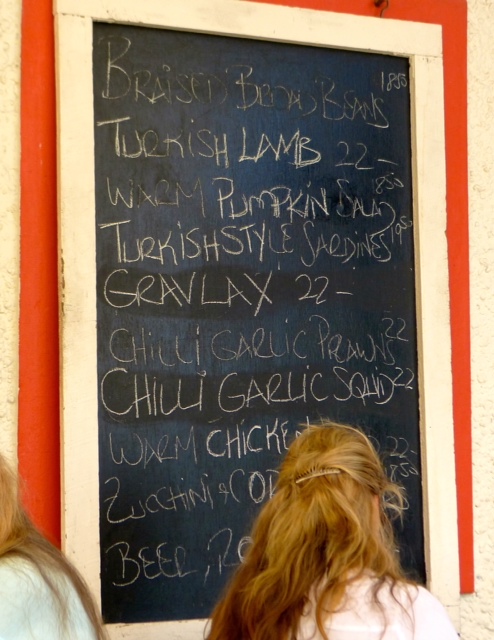 BRAISED BROAD BEANS 1850
TURKISH LAMB 22-
WARM PUMPKIN SALAD 1850
TURKISH STYLE SARDINES 1950
GRAVLAX 22-
CHILLI GARLIC PRAWNS 22
CHILLI GARLIC SQUID 22
WARM CHICKEN 22-
ZUCCHINI + CO
BEER,